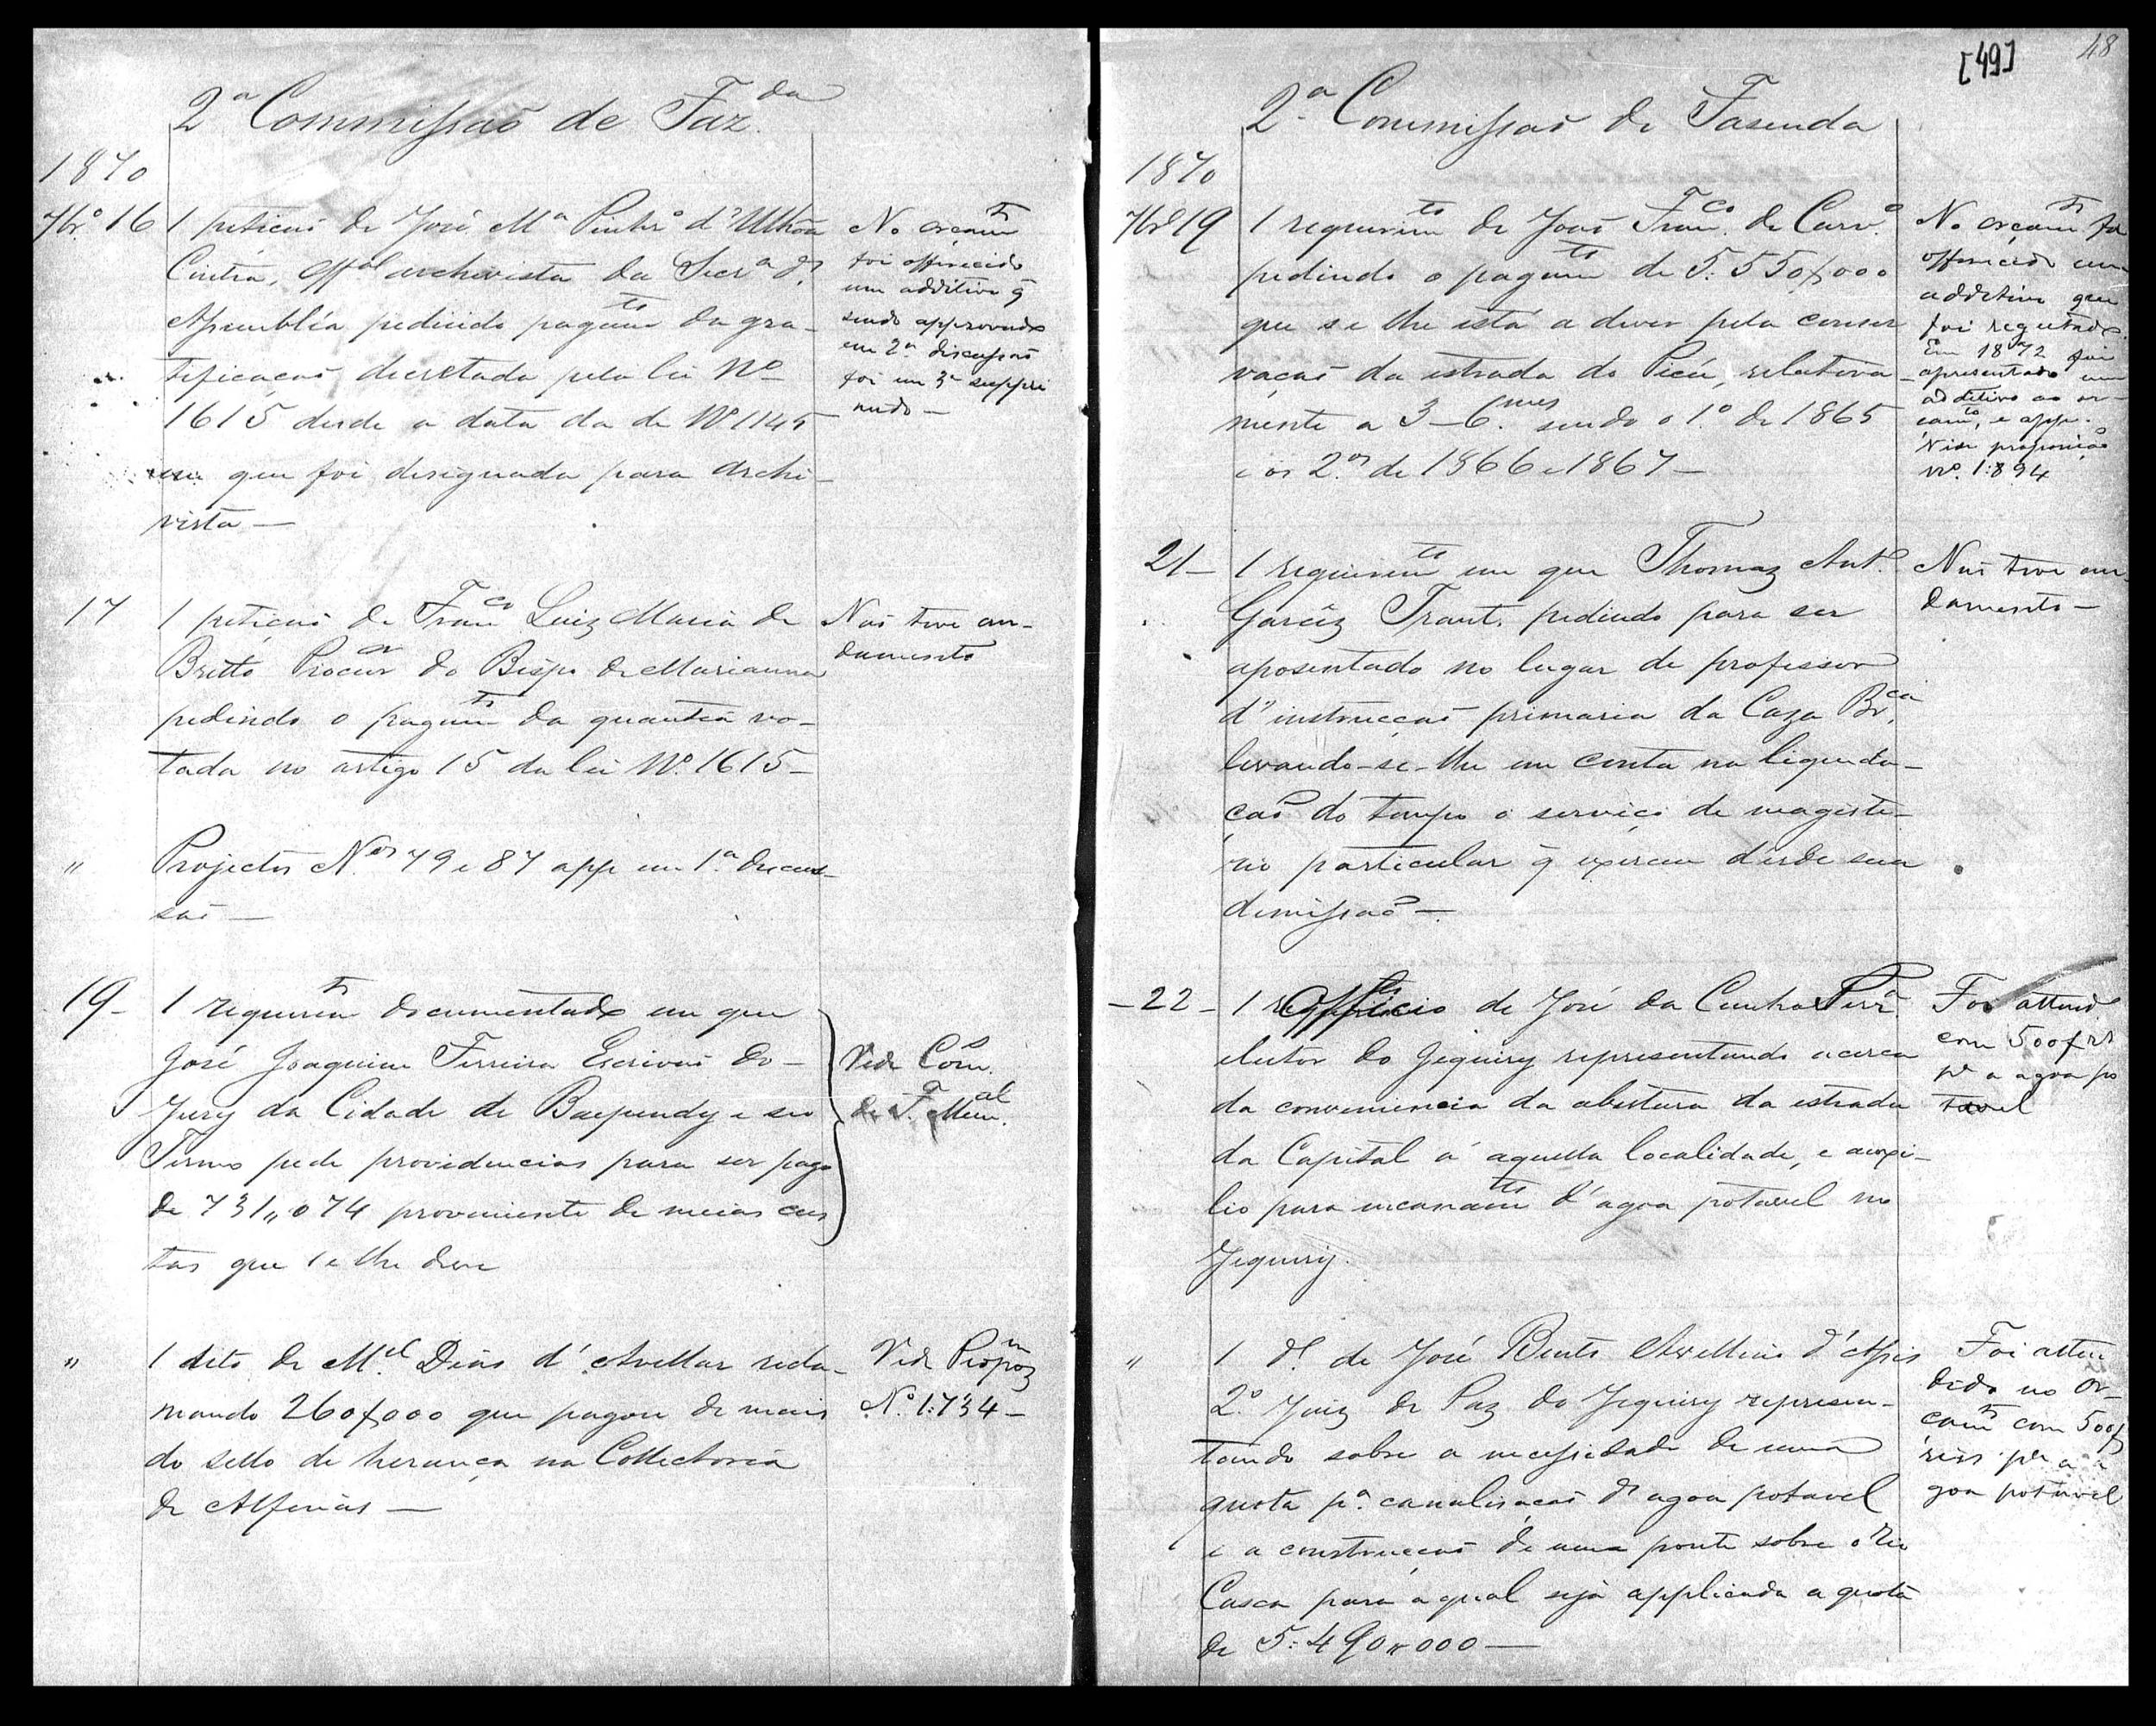 2ª Commissaõ de Faz.da
1870
7br.º 16
1 petiçaõ de José Mª Pinhrº d'Ulhôa
Cintra, Off.al archivista da Secrª d'
Assembléa pedindo pagamto da gra-
tificaçaõ decretada pela lei Nº
1615 desde a data da de Nº 1145
em que foi designado para archi-
vista —
No orçamto
foi offerecido
um additivo q̃
sendo approvado
em 2ª discussaõ
foi em 3ª suppri
mido —
17
1 petiçaõ de Franco Luiz Maria de
Britto Procuror do Bispo de Marianna
pedindo o pagamto da quantia vo-
tada no artigo 15 da lei Nº 1615 —
Naõ teve an-
damento
"
Projectos N.os 79 e 87 app em 1ª discus-
saõ —
19 -
1 requerimto documentado em que
José Joaquim Ferreira Escrivaõ do -
Jury da Cidade de Baependy e seu
Termo pede providencias para ser pago
de 731,,074 proveniente de meias cus
tas que se lhe deve
Vide Com.º
de F. Mun.al
"
1 dito de M.el Dias d'Avellar recla-
mando 260$000 que pagou de mais
do sello de herança na Collectoria
de Alfenas —
Vide Propozm
Nº 1:734 —
[49]
48
2ª Commissaõ de Fasenda
1870
7brº 19
1 requerimto de Joaõ Franco de Carvº
pedindo o pagamto de 5:550$000
que se lhe está a dever pela conser
vaçaõ da estrada do Picú, relativa -
mente a 3 - 6.mes sendo o 1º de 1865
e os 2.os de 1866 e 1867 —
No orçamto foi
offerecido um
additivo que
foi regeitado
Em 1872 foi
apresentado um
additivo ao or-
çamto, e app.
Vide proposiçaõ
Nº 1:894
21 —
1 requerimto em que Thomaz Antº
Garcêz Trant. pedindo para ser
aposentado no lugar de professor
d'instrucçaõ primaria da Caza Br.ca
levando-se-lhe em conta na liquida-
çaõ do tempo o serviço de magiste-
rio particular q̃ exerceu desde sua
demissaõ —
Naõ teve an-
damento —
— 22 —
1 Officio de José da Cunha Perª
eleitor do Jequiry representando acerca
da conveniencia da abertura da estrada
da Capital a' aquella localidade, e auxi-
lio para encanamto d'agoa potavel no
Jequiry.
Foi attend.º
com 500$rs
pª a agoa po
tavel
"
1 d.º de José Bento Avellino d'Assis
2º Juiz de Paz do Jequiry represen-
tando sobre a necessidade de uma
quota pª canalisaçaõ d'agoa potavel
e a construcçaõ de uma ponte sobre o Rio
Casca para a qual seja applicada a quota
de 5:490,,000 —
Foi atten
dido no Or-
çamto com 500$
reis pª a a
goa potavel